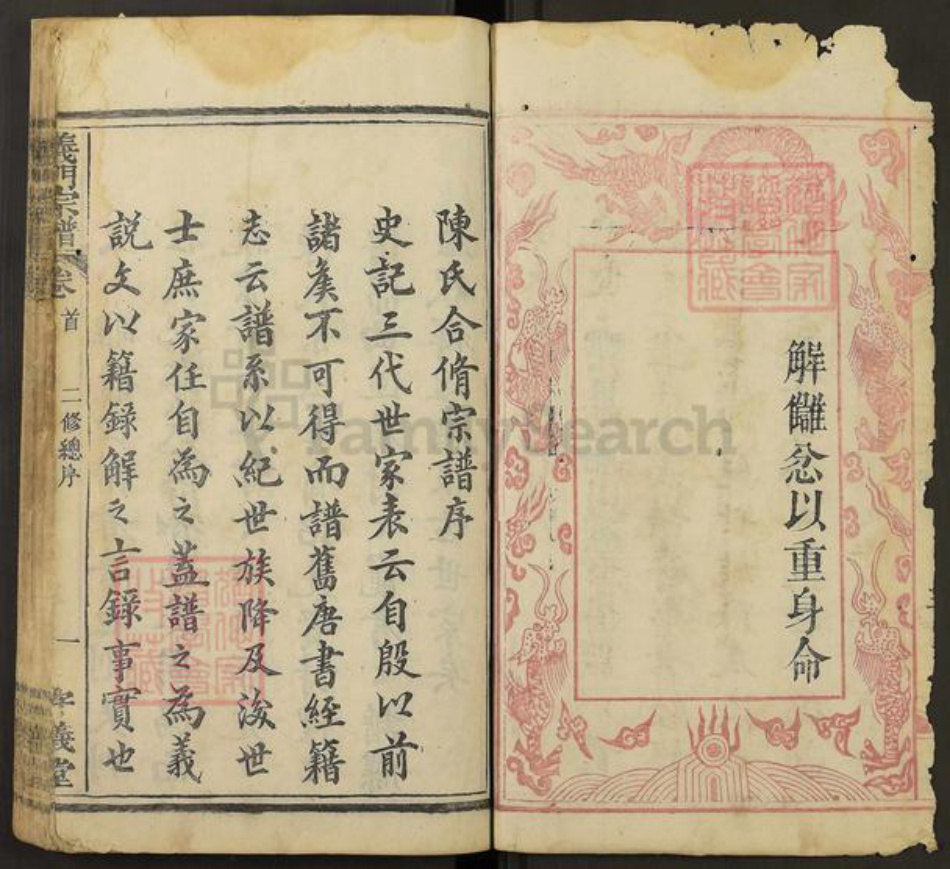 解讎忿以重身命
陳氏合脩宗譜序
史記三代世家表云自殷以前
諸矦不可得而譜舊唐書經籍
志云譜系以紀世族降及後世
士庶家任自為之蓋譜之為義
說文以籍録解之言録事實也
義門宗譜
卷首
二修總序
一
義堂
FamilySearch